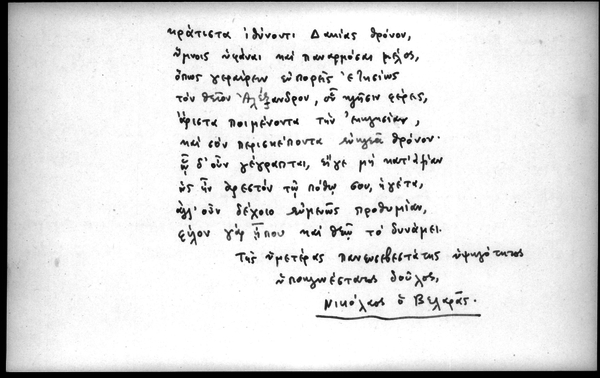 κράτιστα ἰθύνοντι Δακίας θρόνον,
ὕμνοις ὑφᾶναι καὶ παναρμόσαι μέλος,
ὅπως γεραίρειν εὐπορεῖς ἐτησίως
τὸν θεῖον Ἀλέξανδρον, οὗ κλῆσιν φέρεις,
ἄριστα ποιμένοντα τὴν ἐκκλησίαν,
καὶ σὸν περισκέποντα εὐκλεᾶ θρόνον·
ᾧ δ' οὖν γέγραπται, εἴγε μὴ κατ' ἀξίαν
ὡς ἦν ἀρεστὸν τῷ πόθῳ σου, ἡγέτα,
ἀλλ' οὖν δέχοιο εὐμενῶς προθυμίαν,
φίλον γὰρ ἦπου καὶ θεῷ τὸ δυνάμει.
Τῆς ὑμετέρας πανευσεβεστάτης ὑψηλότητος
ὑποκλινέστατος δοῦλος,
Νικόλαος ὁ Βελαρᾶς.